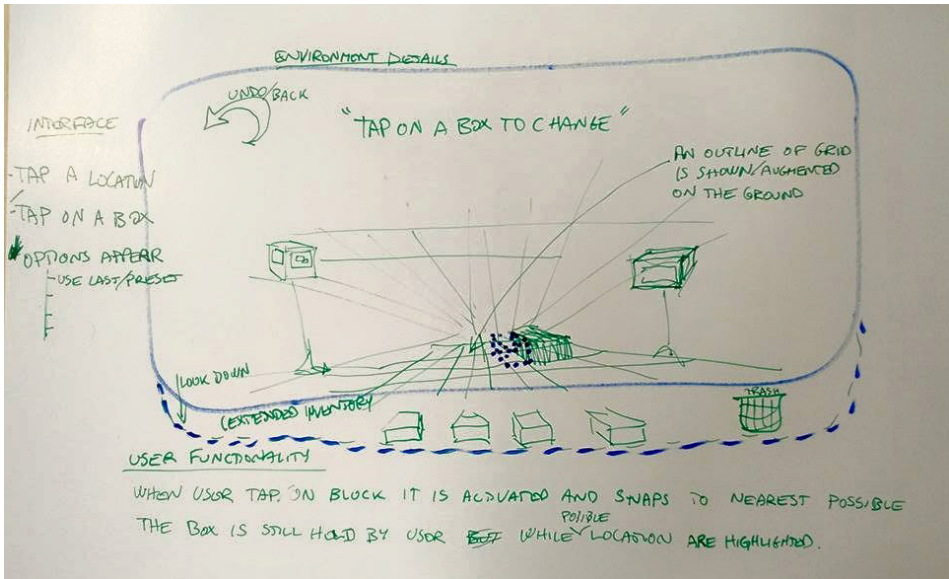 ENVIRONMENT DETAILS
UNDO/BACK
"TAP ON A BOX TO CHANGE"
INTERFACE
- TAP A LOCATION
- TAP ON A BOX
OPTIONS APPEAR
- USE LAST/PRESET
AN OUTLINE OF GRID
IS SHOWN/AUGMENTED
ON THE GROUND
LOOK DOWN
(EXTENDED INVENTORY
TRASH
USER FUNCTIONALITY
WHEN USER TAP ON BLOCK IT IS ACTIVATED AND SNAPS TO NEAREST POSSIBLE
THE BOX IS STILL HOLD BY USER WHILE POSIBLE LOCATION ARE HIGHLIGHTED.